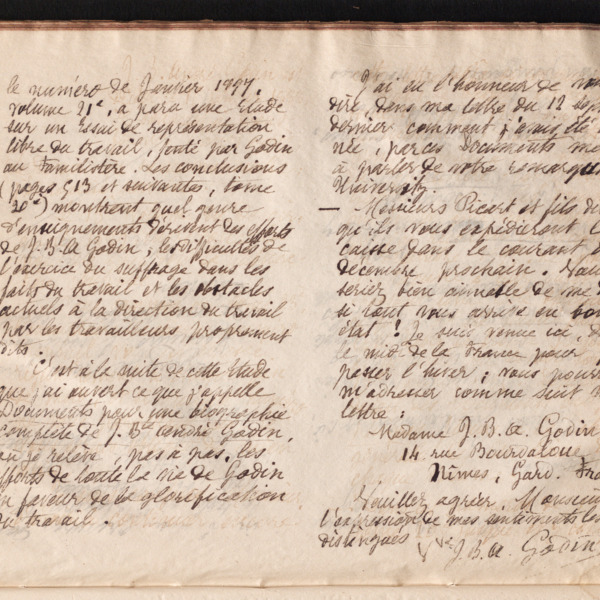 le numéro de Janvier 1897,
volume 21e, a paru une Etude
sur un Essai de représentation
libre du travail, tenté par Godin
au Familistère. Les conclusions
(pages 513 et suivantes, tome
20e) montrent quel genre
d'enseignements dérivent des efforts
de J. B. A. Godin, les difficultés de
l'exercice du suffrage dans les
faits du travail et les obstacles
actuels à la direction du travail
par les travailleurs proprement
dits.
C'est à la suite de cette Etude
que j'ai ouvert ce que j'appelle
Documents pour une biographie
complète de J. Bte andré Godin,
où je relève, pas à pas, les
efforts de toute la vie de Godin
en faveur de la glorification
du travail.
J'ai eu l'honneur de
dire, dans ma lettre du 12
dernier comment j'avais été
née, par ces Documents
à parler de votre
University.
— Messieurs Picart et fils
qu'ils vous expédieront
caisse dans le courant
décembre prochain.
seriez bien aimable de me
si tout vous arrive en bon
état! Je suis venue ici,
le midi de la France pour
passer l'hiver; vous
m'adresser comme suit
lettre:
Madame J. B. A. Godin
14, rue Bourdaloue
Nîmes, Gard.
Veuillez agréer, Monsieur
l'expression de mes sentiments les
distingués
Vve J. B. A. Godin